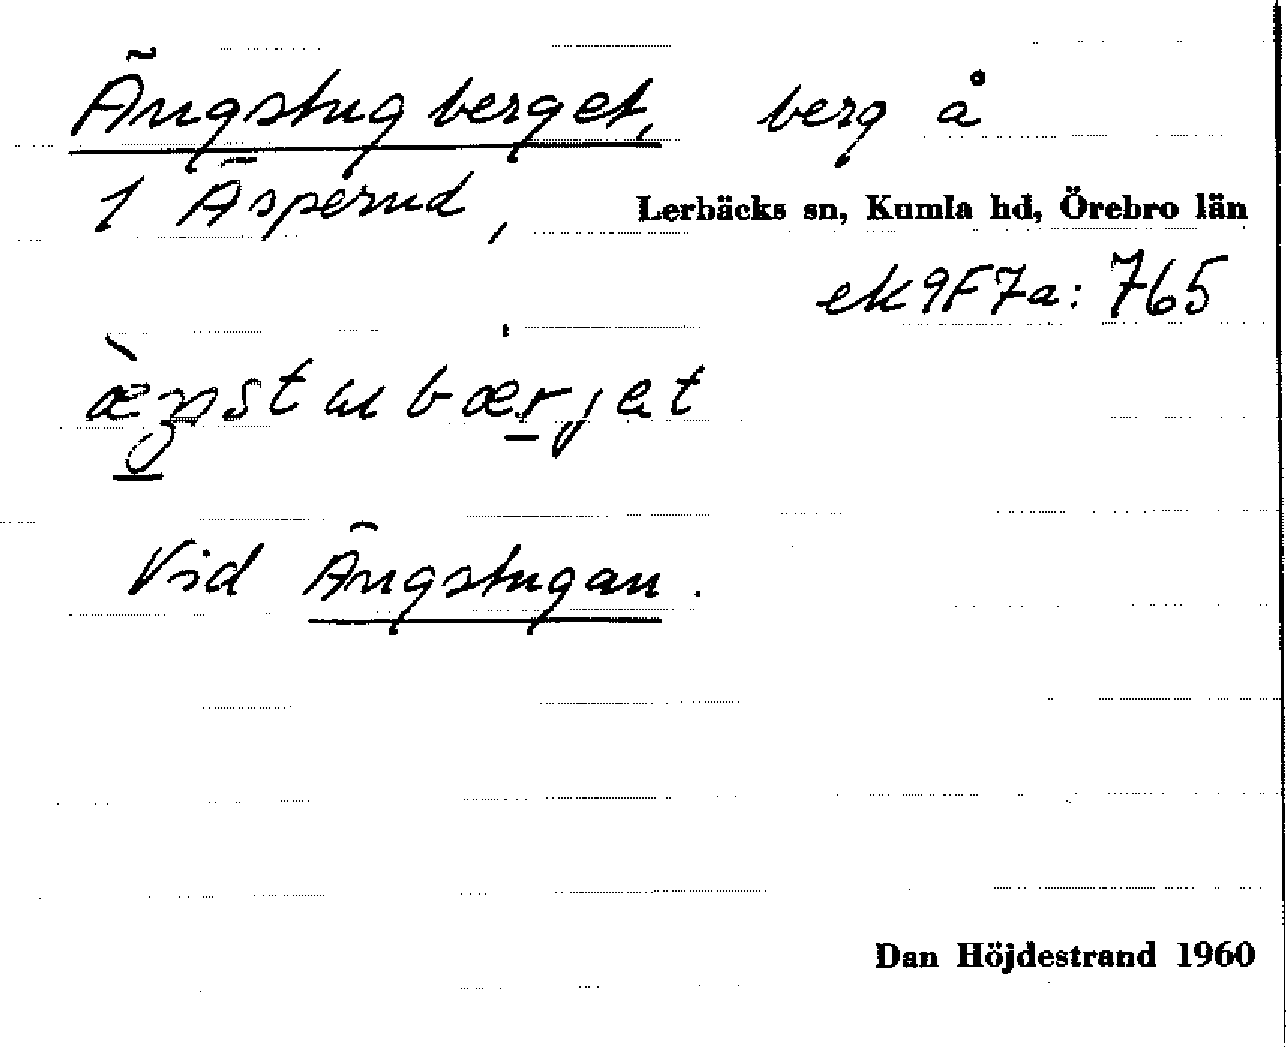 Ängstugberget, berg å
1 Äsperud, Lerbäcks sn, Kumla hd, Örebro län
ek 9F7a: 765
Vid Ängstugan.
Dan Höjdestrand 1960